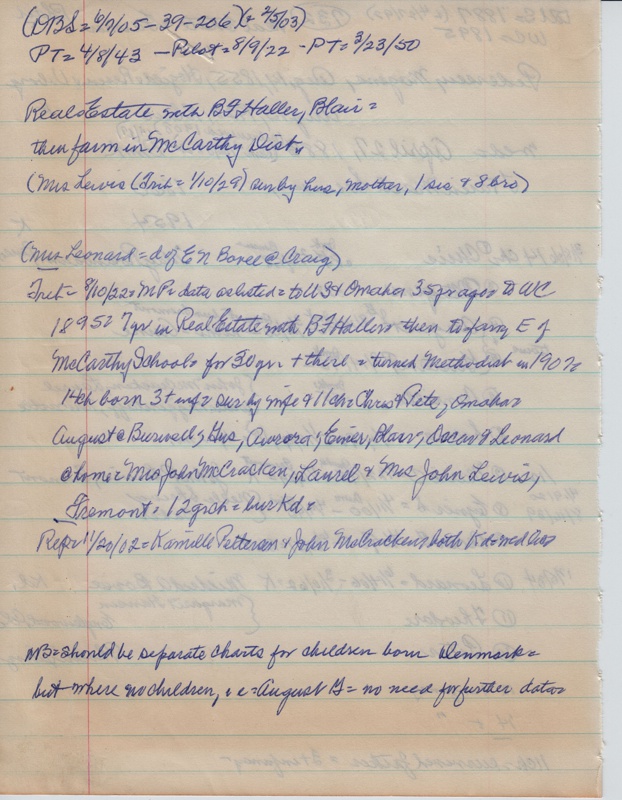 (OBS = 6/7/05-39-206)(& 2/5/03)
PT = 4/8/43 - Pilot = 8/9/22 - PT = 3/23/50
Real Estate with BF Haller, Blair =
then farm in McCarthy Dist.
(Mrs Lewis (Trib = 1/10/29) sur by hus, mother, 1 sis & 8 bro)
(Mrs Leonard = d of E N Boree @ Craig)
Trib = 8/10/22 = MP = data as listed = to US & Omaha 35 yr ago = to WC
1895 = 7 yr in Real Estate with BF Haller = then to farm E of
McCarthy School = for 30 yr + there = turned Methodist in 190
14 ch born 3 + inf = sur by wife & 11 ch = Chris & Pete, Omaha =
August @ Burwell, Gus, Aurora, Emer, Blair, Oscar & Leonard
@ home = Mrs John McCracken, Laurel & Mrs John Lewis,
Fremont = 12 grch = bur Kd =
Repr 11/20/02 = Kamille Petterson & John McCracken both Kd = med
NB = should be separate charts for children born Denmark =
but where no children, i e = August G = no need for further data =